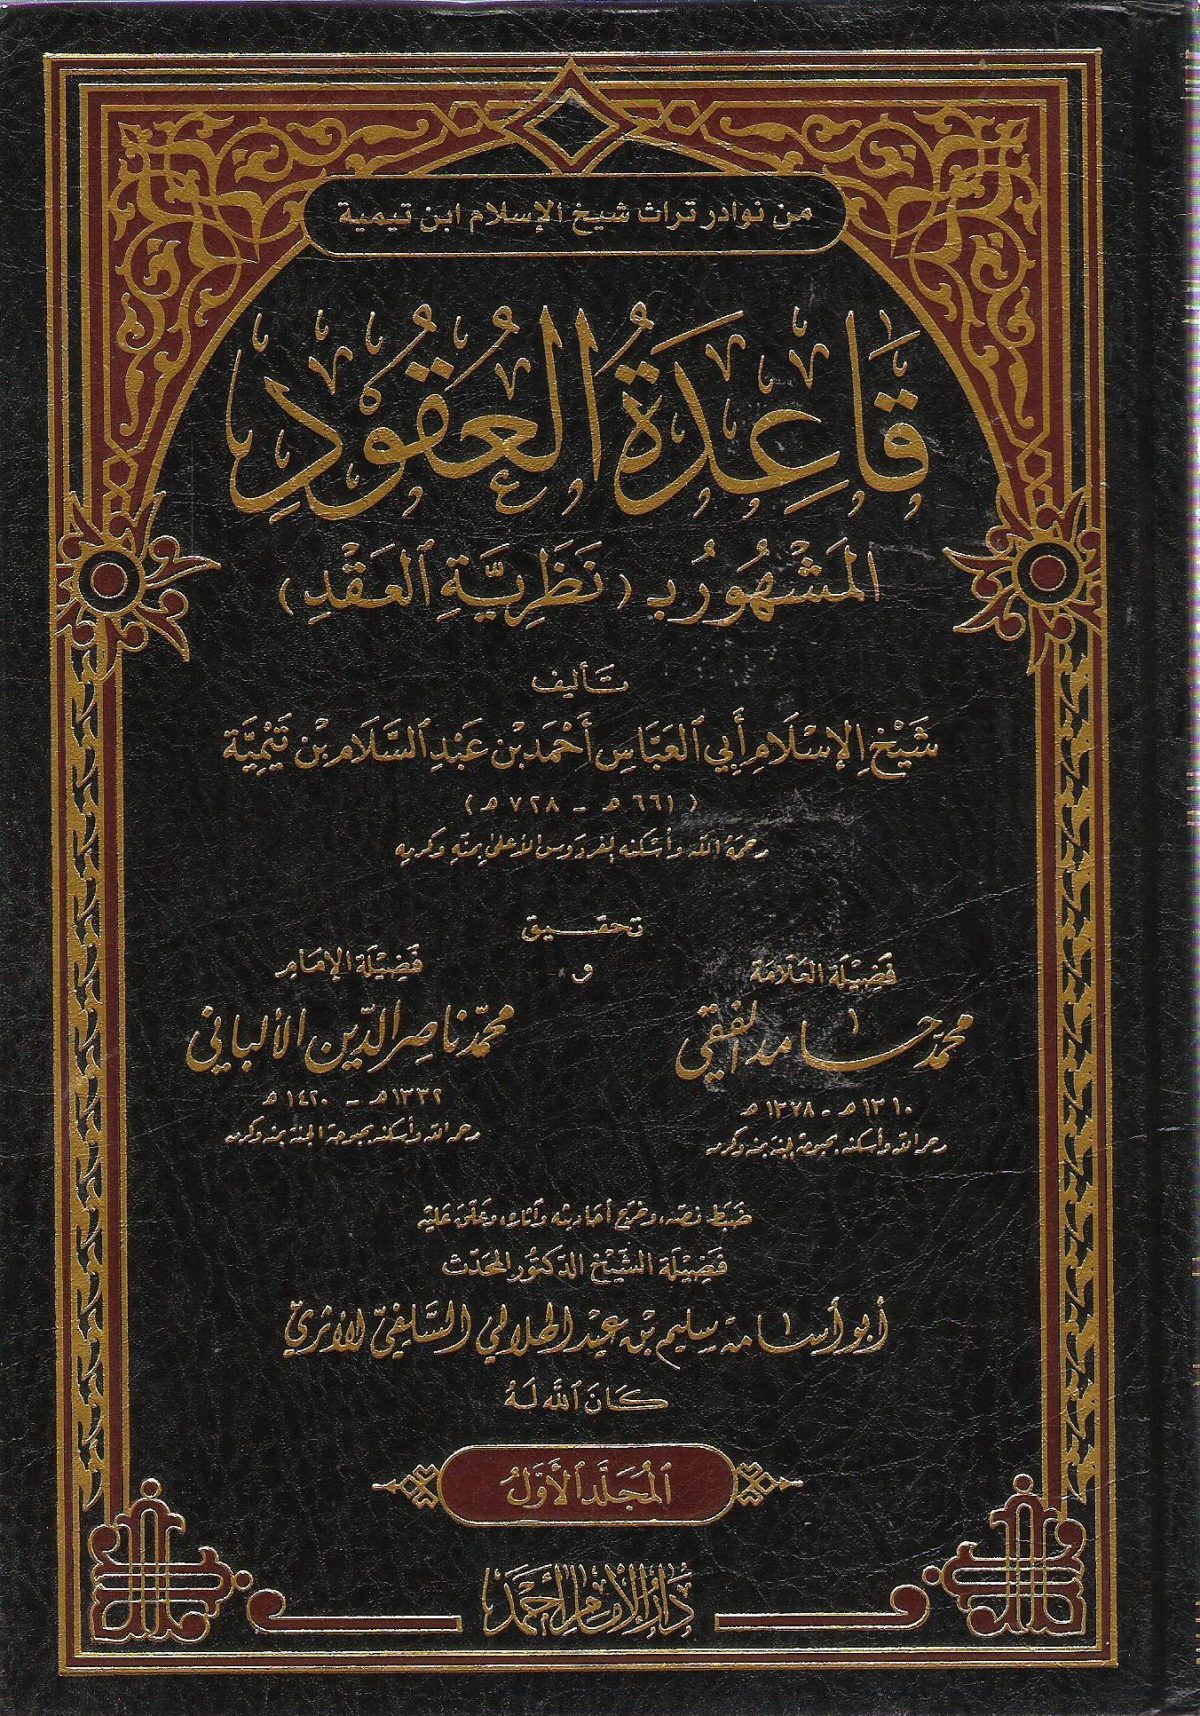 من نوادر تراث شيخ الإسلام ابن تيمية
قَاعِدَةُ العُقُودِ
المَشْهُورُ بـ (نَظَرِيَّةِ العَقْدِ)
تأليف
شَيْخِ الإِسْلَامِ أَبِي العَبَّاسِ أَحْمَدَ بْنِ عَبْدِ السَّلَامِ بْنِ تَيْمِيَّة
(٦٦١ هـ - ٧٢٨ هـ)
رحمه الله وأسكنه الفردوس الأعلى بمنه وكرمه
تحقيق
فضيلة العلامة
محمد حامد الفقي
١٣١٠ هـ - ١٣٧٨ هـ
رحمه الله وأسكنه بحبوحة الجنة بمنه وكرمه
و
فضيلة الإمام
محمد ناصر الدين الألباني
١٣٣٢ هـ - ١٤٢٠ هـ
رحمه الله وأسكنه بحبوحة الجنة بمنه وكرمه
ضبط نصه، وخرج أحاديثه وآثاره، وعلق عليه
فضيلة الشيخ الدكتور المحدث
أبو أسامة سليم بن عيد الهلالي السلفي الأثري
كان الله له
المجلد الأول
دار الإمام أحمد